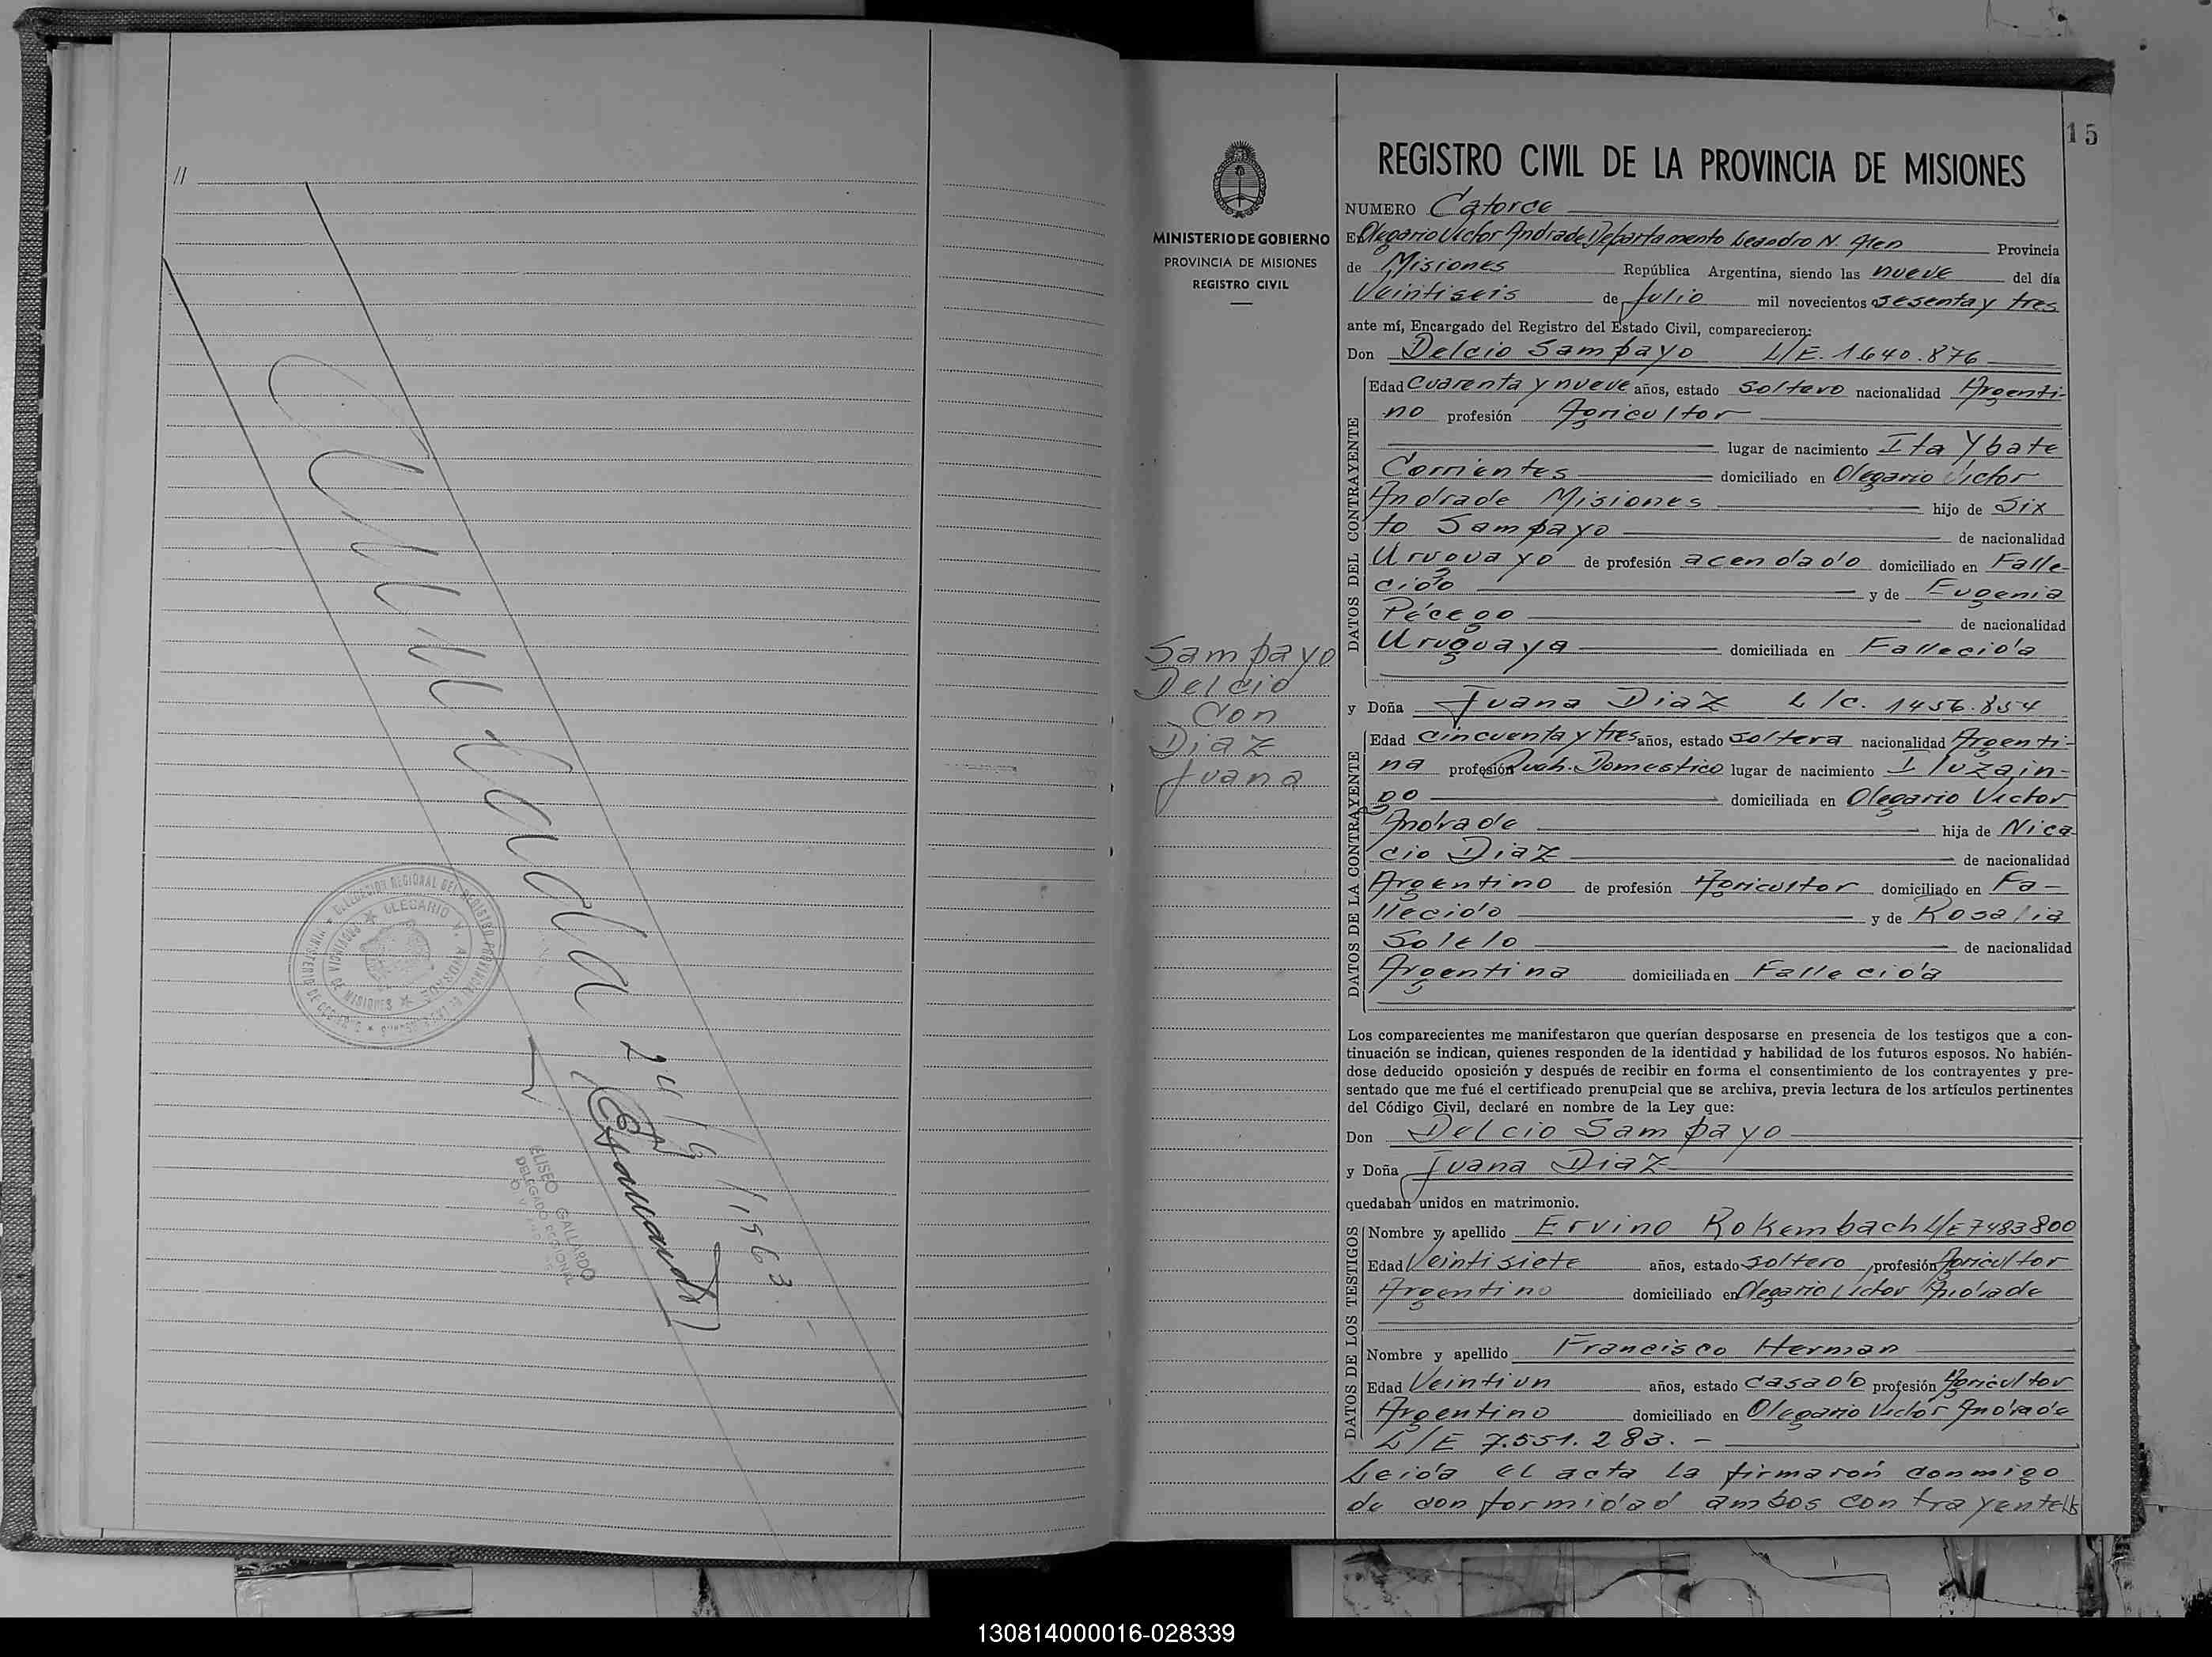 //
Anulada 24/6/1963
DELEGACION REGIONAL DEL REGISTRO PROVINCIAL DE LAS PERSONAS * MINISTERIO DE GOBIERNO *
OLEGARIO V. ANDRADE * MISIONES *
ELISEO GALLARDO
DELEGADO REGIONAL
15
MINISTERIO DE GOBIERNO
PROVINCIA DE MISIONES
REGISTRO CIVIL
Sampayo
Delcio
Con
Diaz
Juana
REGISTRO CIVIL DE LA PROVINCIA DE MISIONES
NUMERO Catorce
En Olegario Victor Andrade Departamento Leandro N. Alen Provincia
de Misiones República Argentina, siendo las nueve del día
Veintiseis de Julio mil novecientos sesenta y tres
ante mí, Encargado del Registro del Estado Civil, comparecieron:
Don Delcio Sampayo L/E. 1.640.876
DATOS DEL CONTRAYENTE
Edad Cuarenta y nueve años, estado soltero nacionalidad Argenti-
no profesión Agricultor
lugar de nacimiento Ita Ybate
Corrientes domiciliado en Olegario Victor
Andrade Misiones hijo de Six
to Sampayo de nacionalidad
Uruguayo de profesión acendado domiciliado en Falle-
cido y de Eugenia
Pécego de nacionalidad
Uruguaya domiciliada en Fallecida
y Doña Juana Diaz L/C. 1456.854
DATOS DE LA CONTRAYENTE
Edad cincuenta y tres años, estado soltera nacionalidad Argenti-
na profesión Queh. Domestico lugar de nacimiento Ituzain-
go domiciliada en Olegario Victor
Andrade hija de Nica
cio Diaz de nacionalidad
Argentino de profesión Agricultor domiciliado en Fa-
llecido y de Rosalia
Sotelo de nacionalidad
Argentina domiciliada en Fallecida
Los comparecientes me manifestaron que querían desposarse en presencia de los testigos que a con-
tinuación se indican, quienes responden de la identidad y habilidad de los futuros esposos. No habién-
dose deducido oposición y después de recibir en forma el consentimiento de los contrayentes y pre-
sentado que me fué el certificado prenupcial que se archiva, previa lectura de los artículos pertinentes
del Código Civil, declaré en nombre de la Ley que:
Don Delcio Sampayo
y Doña Juana Diaz
quedaban unidos en matrimonio.
DATOS DE LOS TESTIGOS
Nombre y apellido Ervino Rokembach L/E 7483800
Edad Veintisiete años, estado soltero profesión Agricultor
Argentino domiciliado en Olegario Victor Andrade
Nombre y apellido Francisco Herman
Edad Veintiun años, estado casado profesión Agricultor
Argentino domiciliado en Olegario Victor Andrade
L/E 7.551.283. -
Leida el acta la firmaron conmigo
de conformidad ambos contrayentes
130814000016-028339